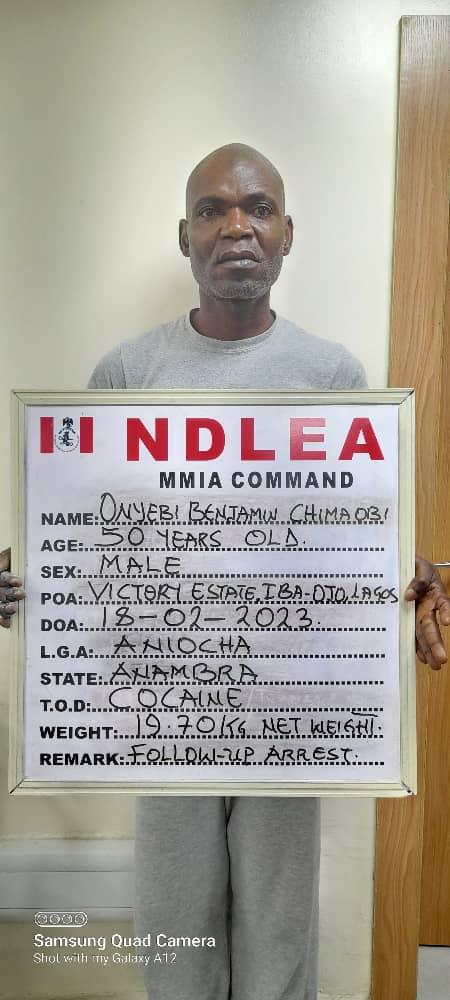 NDLEA
MMIA COMMAND
NAME: ONYEBI BENJAMIN CHIMAOBI
AGE: 50 YEARS OLD.
SEX: MALE
POA: VICTORY ESTATE, IBA-OJO, LAGOS
DOA: 18-02-2023.
L.G.A: ANIOCHA
STATE: ANAMBRA
T.O.D: COCAINE
WEIGHT: 19.70KG NET WEIGHT.
REMARK: FOLLOW-UP ARREST.
Samsung Quad Camera
Shot with my Galaxy A12